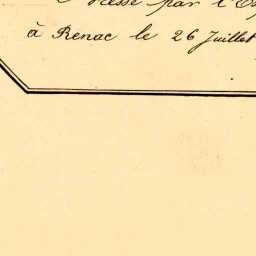 par l'
à Renac le 26 Juillet